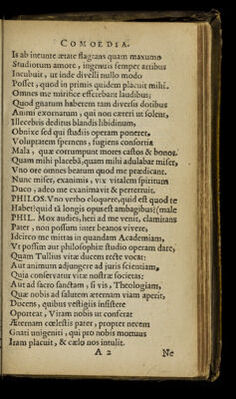 COMOEDIA.
Is ab ineunte ætate flagrans quam maxumo
Studiorum amore, ingenuis semper artibus
Incubuit, ut inde divelli nullo modo
Posset, quod in primis quidem placuit mihi.
Omnes me mirifice efferebant laudibus,
Quod gnatum haberem tam diversis dotibus
Animi exornatum, qui non cæteri ut solent,
Illecebris deditus blandis libidinum,
Obnixe sed qui studiis operam poneret.
Voluptatem spernens, fugiens consortia
Mala, quæ corrumpunt mores castos & bonos.
Quam mihi placebã, quam mihi adulabar miser,
Uno ore omnes beatum quod me prædicant.
Nunc miser, exanimis, vix vitalem spiritum
Duco, adeo me exanimavit & perterruit.
PHILOS. Vno verbo eloquere, quid est quod te
Habet? quid tã longis opus est ambagibus? (male
PHIL. Mox audies, heri ad me venit, clamitans
Pater, non possum inter beanos vivere,
Idcirco me mittas in quandam Academiam,
Vt possim aut philosophiæ studio operam dare,
Quam Tullius vitæ ducem recte vocat:
Aut animum adjungere ad juris scientiam,
Quia conservatur vitæ nostræ societas;
Aut ad sacro sanctam, si vis, Theologiam,
Quæ nobis ad salutem æternam viam aperit,
Ducens, quibus vestigiis insistere
Oporteat, Viram nobis ut conferat
Æternam cœlestis pater, propter necem
Gnati unigeniti, qui pro nobis mortuus
Iram placuit, & cælo nos intulit.
A 2 Ne